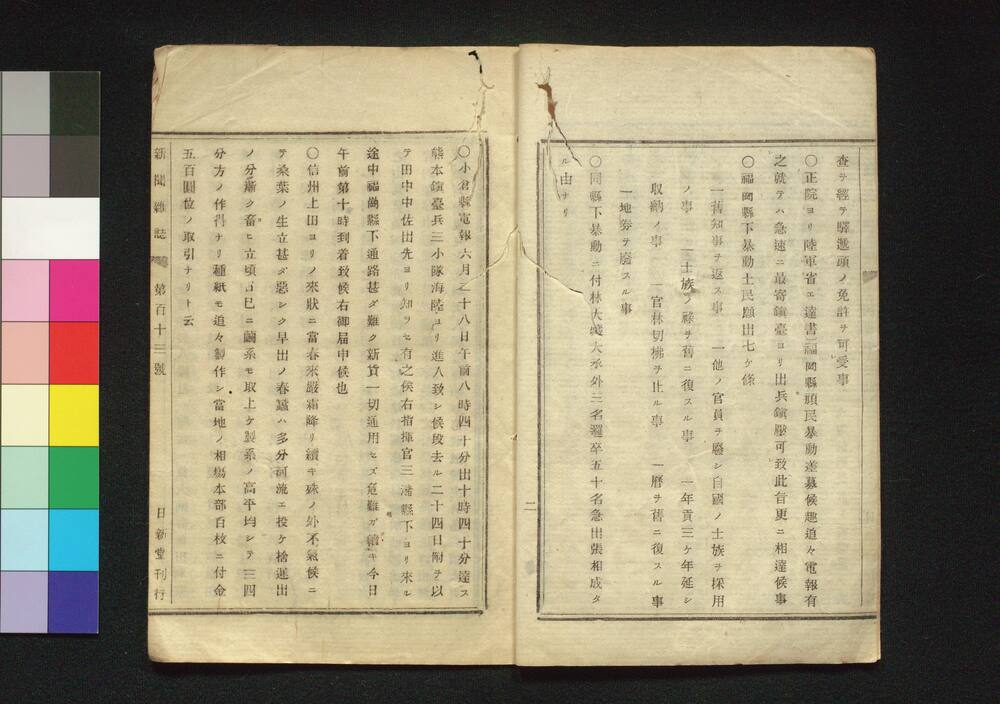 査ヲ經テ驛遞頭ノ免許ヲ可受事
〇正院ヨリ陸軍省エ達書福岡縣頑民暴動差募候趣追々電報有
之就テハ急速ニ最寄鎮臺ヨリ出兵鎮壓可致此旨更ニ相達候事
〇福岡縣下暴動土民願出七ケ條
一舊知事ヲ返ス事 一他ノ官員ヲ廢シ自國ノ士族ヲ採用
ノ事 一士族ノ祿ヲ舊ニ復スル事 一年貢三ケ年延シ
収納ノ事 一官林切拂ヲ止ル事 一曆ヲ舊ニ復スル事
一地券ヲ廢スル事
〇同縣下暴動ニ付林大 大丞外三名邏卒五十名急出張相成タ
ル由ナリ
二
〇小倉縣電報六月二十八日午前八時四十分出十時四十分達ス
熊本鎮臺兵三小隊海陸ヨリ進入致シ候段去ル二十四日附ヲ以
テ田中中佐出先ヨリ知ラセ有之侯右指揮官三潴縣下ヨリ來ル
途中福岡縣下通路甚ダ難ク新貨一切通用セズ 難ガ ギ今日
午前第十時到着致候右御届申候也
〇信州上田ヨリノ來狀ニ當春來嚴霜降リ續キ殊ノ外不氣候ニ
テ桑葉ノ生立甚ダ惡シク早出ノ春蠶ハ多分河流エ投ケ捨遲出
ノ分漸ク畜ヒ立頃日已ニ繭糸モ取上ケ製糸ノ高平均シテ三四
分方ノ作得ナリ種紙モ追々製作シ當地ノ相塲本部百枚ニ付金
五百圓位ノ取引ナリト云
新聞雜誌 第百十三號 日新堂刊行